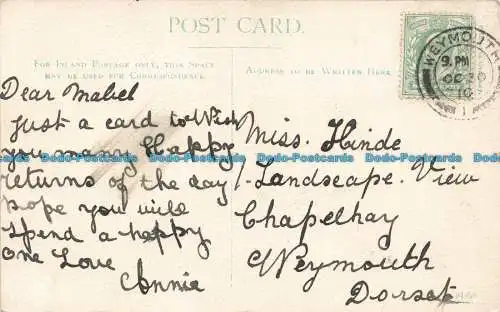 POST CARD.
FOR INLAND POSTAGE ONLY, THIS SPACE
MAY BE USED FOR CORRESPONDENCE.
ADDRESS TO BE WRITTEN HERE.
WEYMOUTH
9. PM
OC 30
10
1
Dear Mabel
Just a card to Wish
you many Happy
returns of the day
hope you will
spend a happy
one Love
Annie
Miss. Hinde
1. Landscape. View
Chapelhay
Weymouth
Dorset
Dodo-Postcards Dodo-Postcards Dodo-Postcards Dodo-Postcards Dodo-Postcards